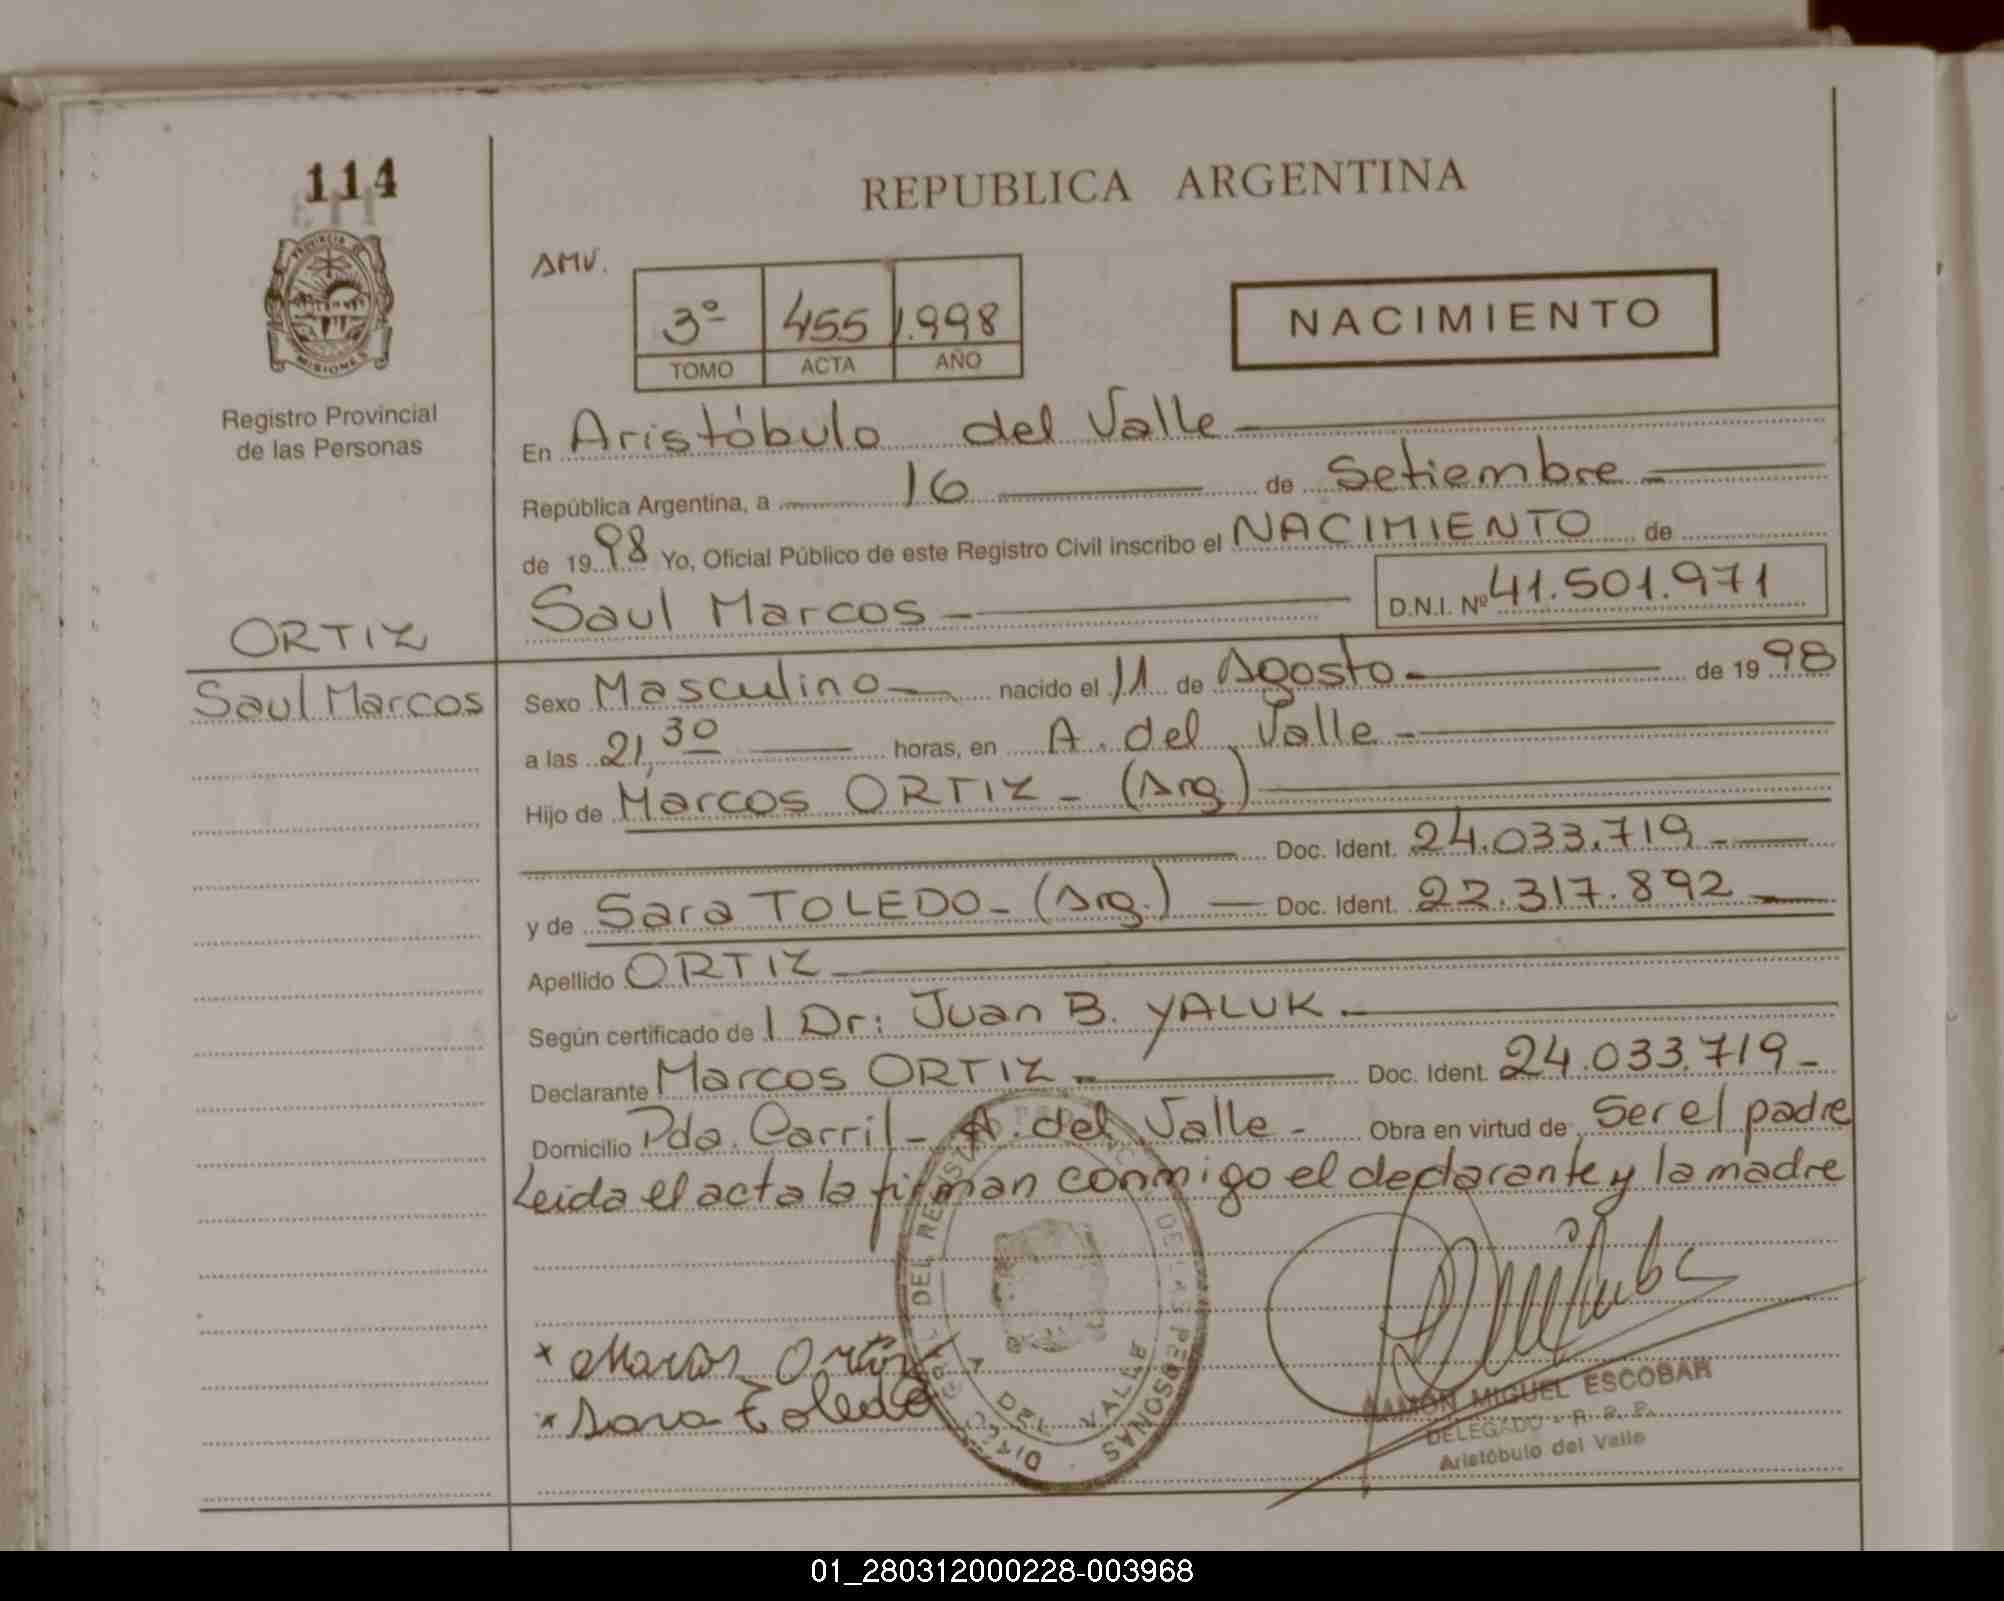 114
REPUBLICA ARGENTINA
PROVINCIA DE
MISIONES
AMV.
3º 455 1.998
TOMO ACTA AÑO
NACIMIENTO
Registro Provincial
de las Personas
En Aristóbulo del Valle
República Argentina, a 16 de Setiembre
de 1998 Yo, Oficial Público de este Registro Civil inscribo el NACIMIENTO de
Saul Marcos D.N.I. Nº 41.501.971
ORTIZ
Saul Marcos
Sexo Masculino nacido el 11 de Agosto de 1998
a las 21,30 horas, en A. del Valle
Hijo de Marcos ORTIZ - (Arg)
Doc. Ident. 24.033.719
y de Sara TOLEDO - (Arg.) Doc. Ident. 22.317.892
Apellido ORTIZ
Según certificado de l Dr: Juan B. YALUK
Declarante Marcos ORTIZ Doc. Ident. 24.033.719
Domicilio Pda. Carril - A. del Valle - Obra en virtud de Ser el padre
Leida el acta la firman conmigo el declarante y la madre
x Marcos Ortiz
x Sara Toledo
DEL REGISTRO DE LAS PERSONAS
A DEL VALLE
RAMON MIGUEL ESCOBAR
DELEGADO - R. P. P.
Aristóbulo del Valle
01_280312000228-003968